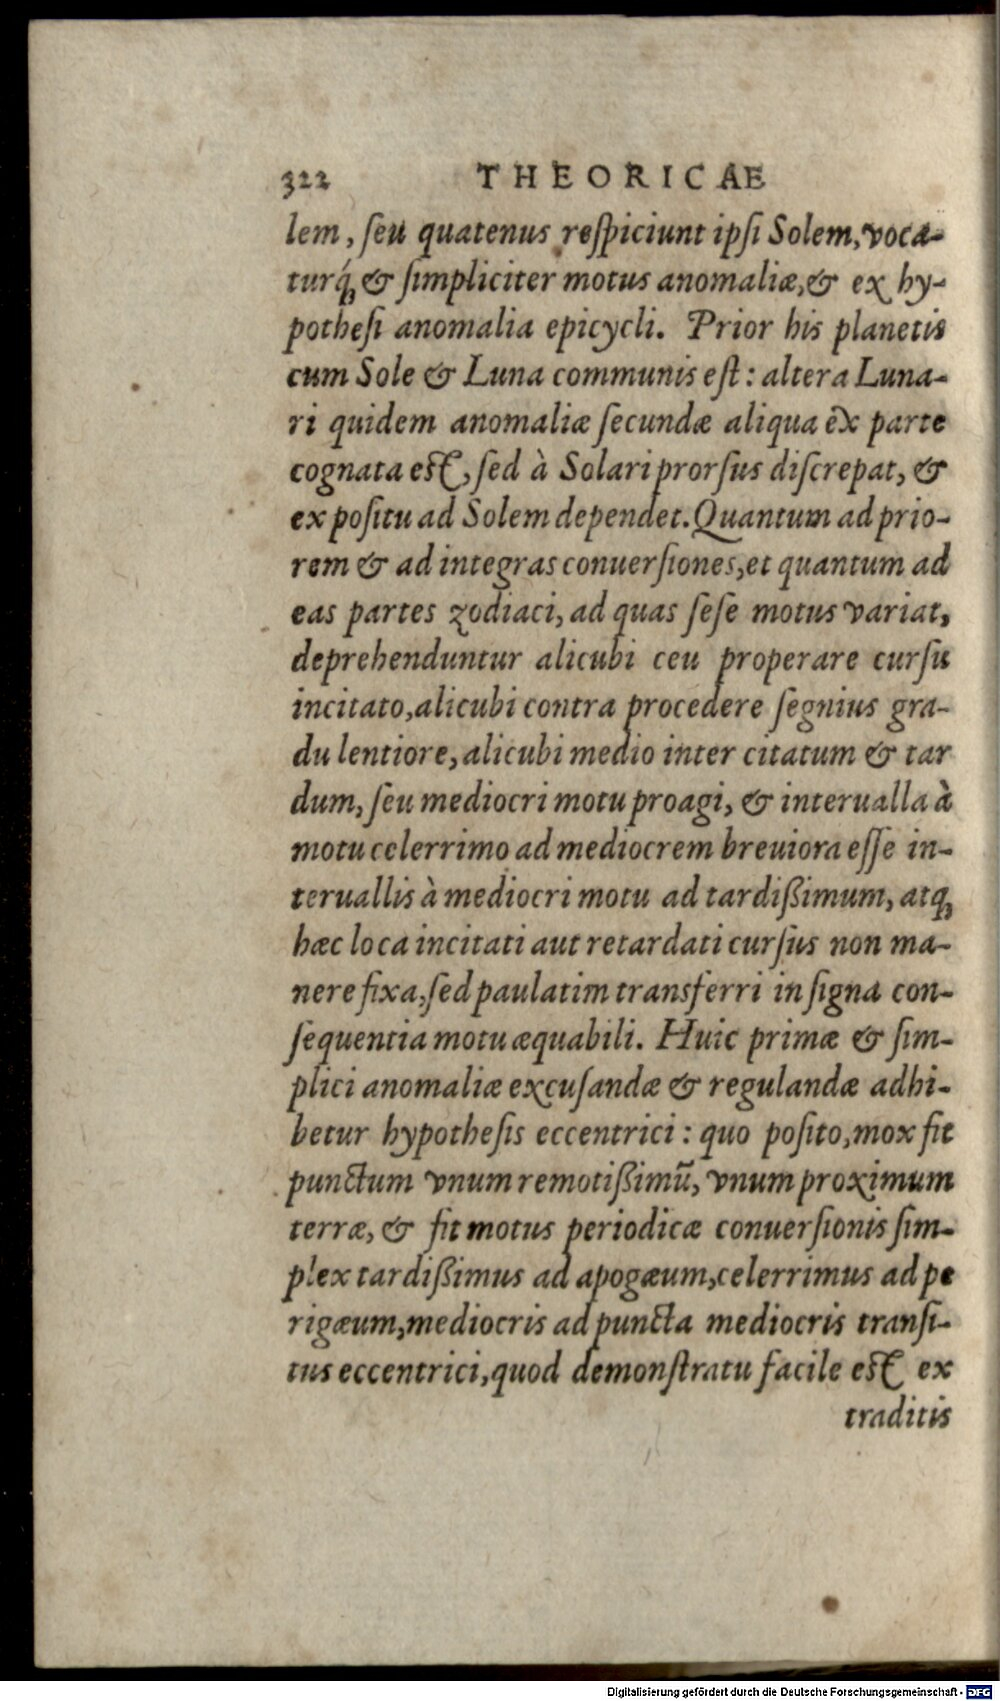 322 THEORICAE
lem, ſeu quatenus reſpiciunt ipſi Solem, voca-
turq́ꝫ & ſimpliciter motus anomaliæ, & ex hy-
potheſi anomalia epicycli. Prior his planetis
cum Sole & Luna communis eſt: altera Luna-
ri quidem anomaliæ ſecundæ aliqua ex parte
cognata eſt, ſed à Solari prorſus diſcrepat, &
ex poſitu ad Solem dependet. Quantum ad prio-
rem & ad integras conuerſiones, et quantum ad
eas partes zodiaci, ad quas ſeſe motus variat,
deprehenduntur alicubi ceu properare curſu
incitato, alicubi contra procedere ſegnius gra-
du lentiore, alicubi medio inter citatum & tar
dum, ſeu mediocri motu proagi, & interualla à
motu celerrimo ad mediocrem breuiora eſſe in-
teruallis à mediocri motu ad tardißimum, atqꝫ
hæc loca incitati aut retardati curſus non ma-
nere fixa, ſed paulatim transferri in ſigna con-
ſequentia motu æquabili. Huic primæ & ſim-
plici anomaliæ excuſandæ & regulandæ adhi-
betur hypotheſis eccentrici: quo poſito, mox fit
punctum vnum remotißimū, vnum proximum
terræ, & fit motus periodicæ conuerſionis ſim-
plex tardißimus ad apogæum, celerrimus ad pe
rigæum, mediocris ad puncta mediocris tranſi-
tus eccentrici, quod demonſtratu facile eſt ex
traditis
Digitalisierung gefördert durch die Deutsche Forschungsgemeinschaft - DFG